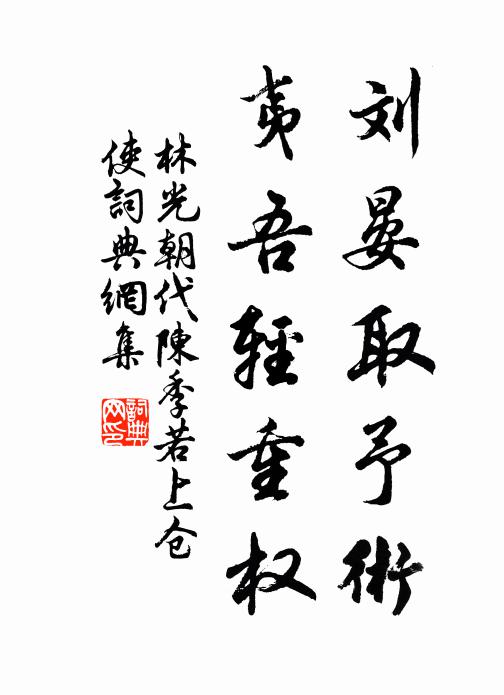 刘晏取予術
夷吾輕重权
林光朝代陳季若上仓
使詞典網集
詞典网印